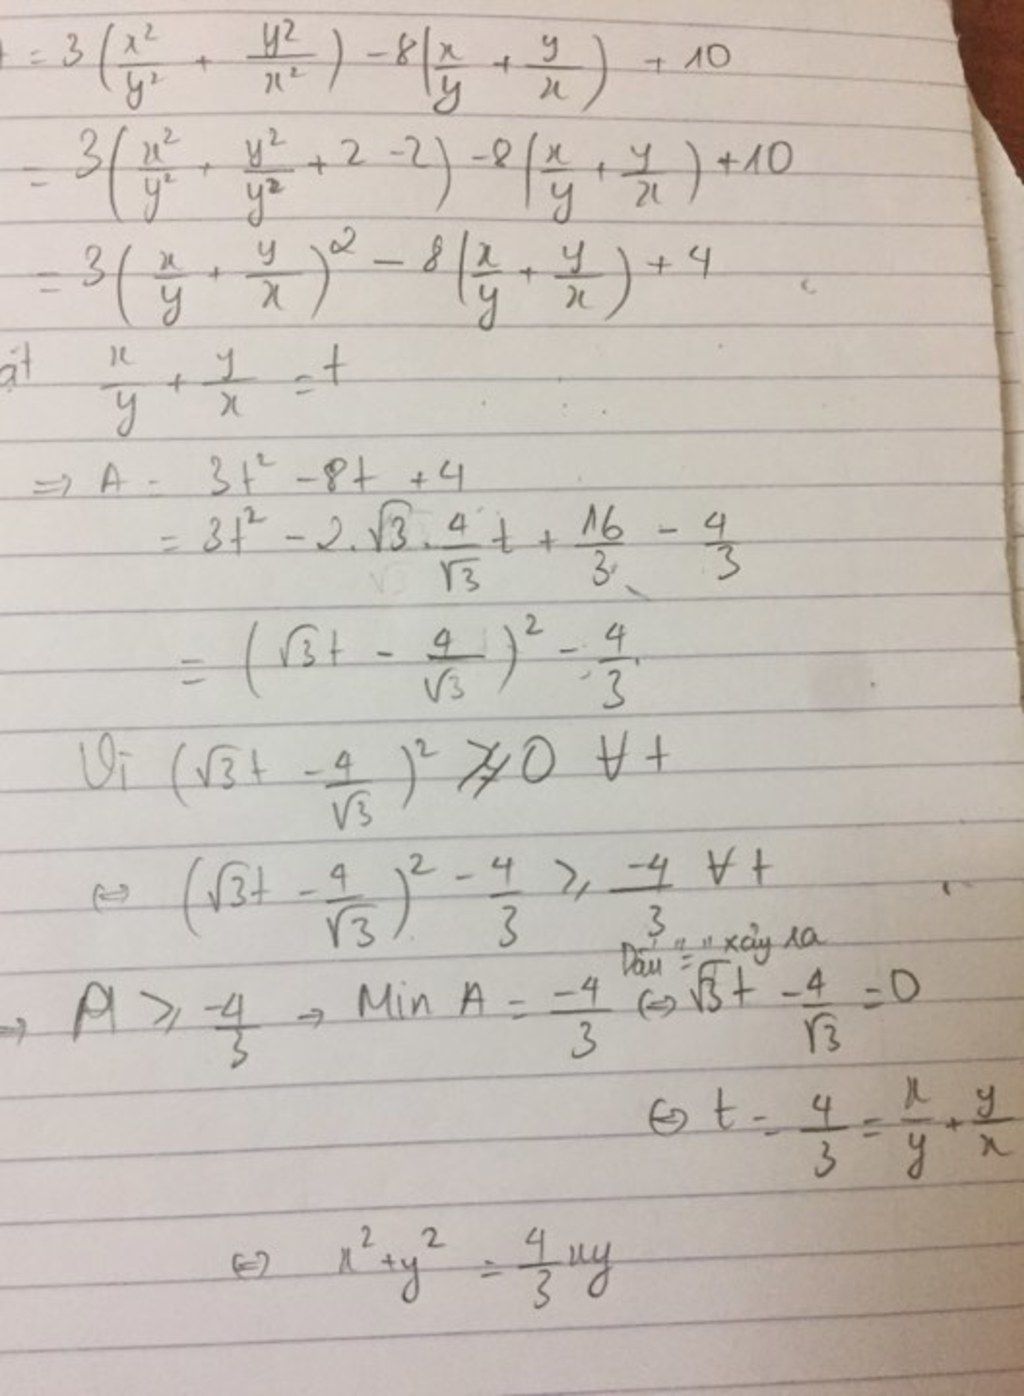 = 3(x²/y² + y²/x²) - 8(x/y + y/x) + 10
= 3(x²/y² + y²/y² + 2 - 2) - 8(x/y + y/x) + 10
= 3(x/y + y/x)² - 8(x/y + y/x) + 4
x/y + y/x = t
⇒ A = 3t² - 8t + 4
= 3t² - 2.√3.4/√3 t + 16/3 - 4/3
= (√3t - 4/√3)² - 4/3
Vì (√3t - 4/√3)² ≥ 0 ∀ t
⇔ (√3t - 4/√3)² - 4/3 ≥ -4/3 ∀ t
Dấu "=" xảy ra
⇒ A ≥ -4/3 → Min A = -4/3 ⇔ √3t - 4/√3 = 0
⇔ t = 4/3 = x/y + y/x
⇔ x² + y² = 4/3 xy